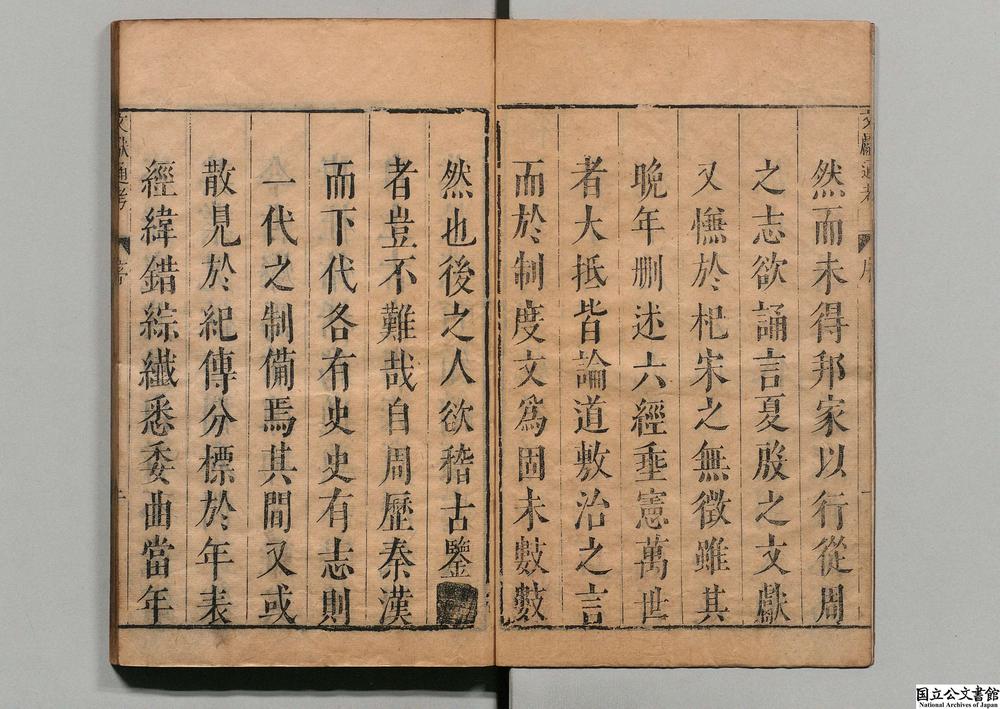 文獻通考 序
然而未得邦家以行從周
之志欲誦言夏殷之文獻
又憮於杞宋之無徴雖其
晩年刪述六經垂憲萬世
者大抵皆論道敷治之言
而於制度文爲固未數數
然也後之人欲稽古鑒
者豈不難哉自周歷秦漢
而下代各有史史有志則
一代之制備焉其間又或
散見於紀傳分標於年表
經緯錯綜纎悉委曲當年
文獻通考 序
国立公文書館
National Archives of Japan